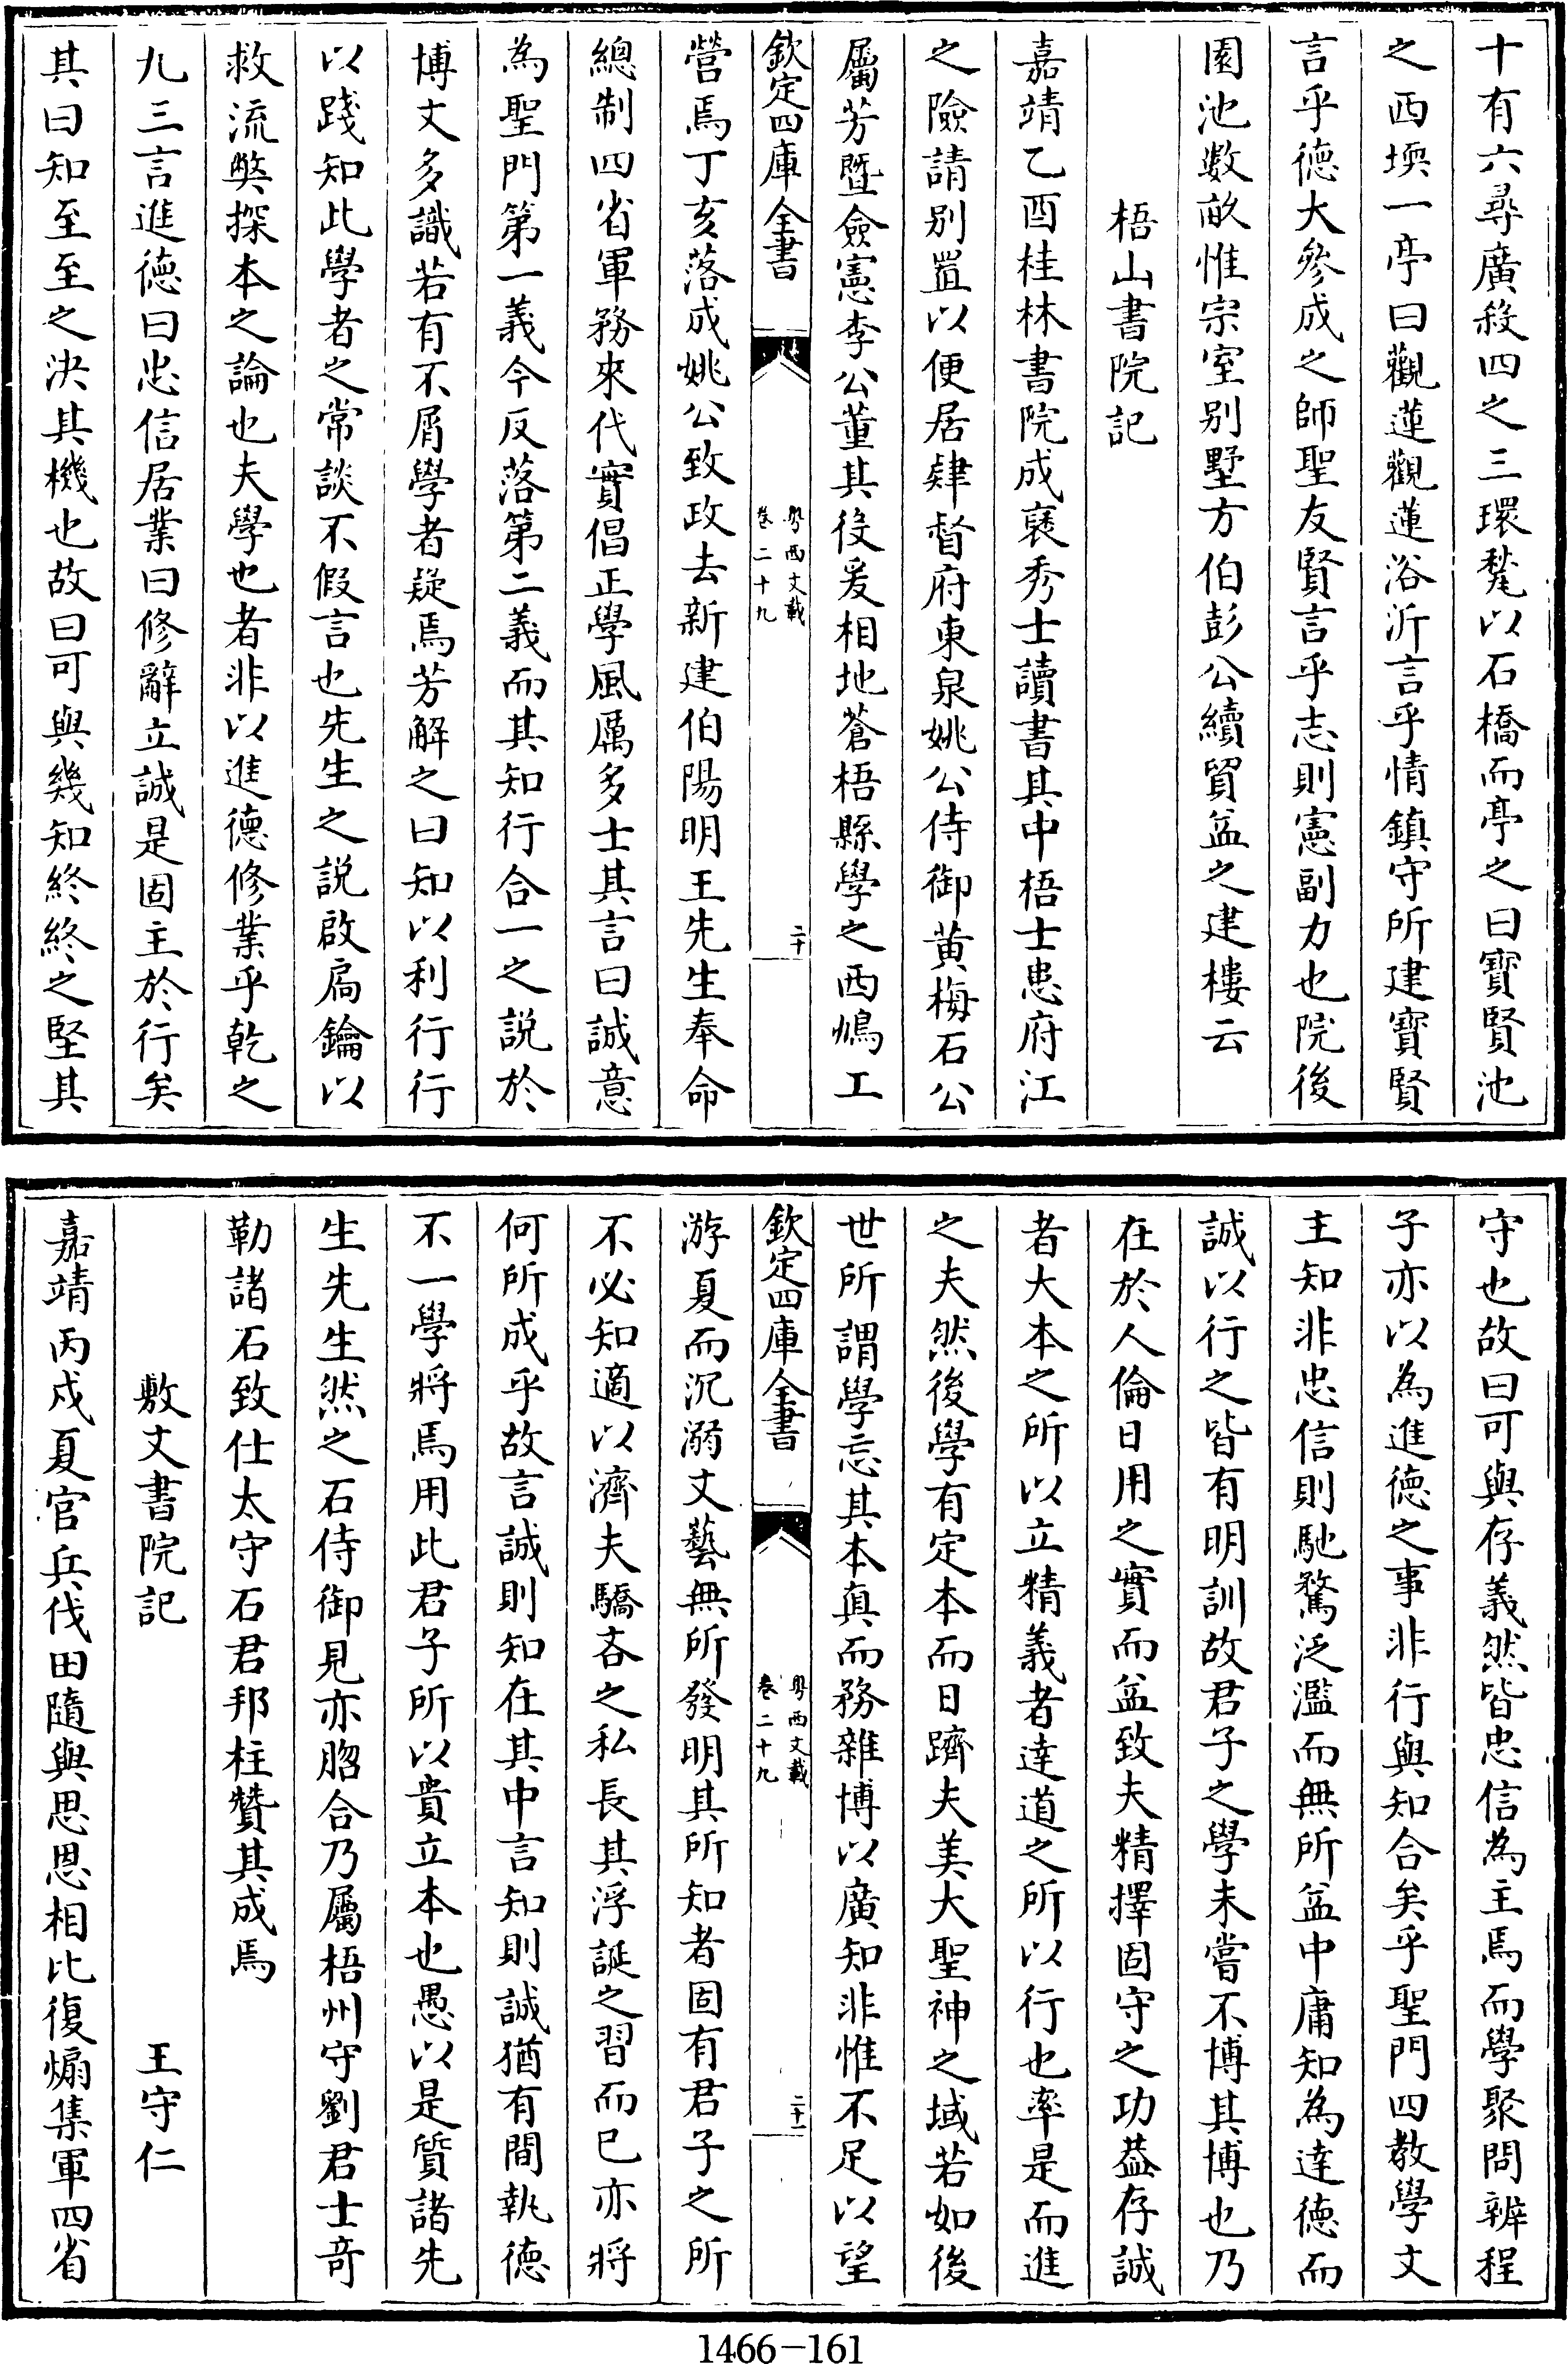 十有六尋廣殺四之三環甃以石橋而亭之曰寳賢池
之西堧一亭曰觀蓮觀蓮浴沂言乎情鎮守所建寳賢
言乎德大參成之師聖友賢言乎志則憲副力也院後
園池數畝惟宗室别墅方伯彭公續貿益之建樓云
梧山書院記
嘉靖乙酉桂林書院成裒秀士讀書其中梧士患府江
之險請别置以便居肄督府東泉姚公侍御黄梅石公
屬芳暨僉憲李公董其役爰相地蒼梧縣學之西鳩工
欽定四庫全書
粤西文載
卷二十九
二十
營焉丁亥落成姚公致政去新建伯陽明王先生奉命
總制四省軍務來代實倡正學風厲多士其言曰誠意
為聖門第一義今反落第二義而其知行合一之説於
博文多識若有不屑學者疑焉芳解之曰知以利行行
以踐知此學者之常談不假言也先生之説啟扃鑰以
救流弊探本之論也夫學也者非以進德修業乎乾之
九三言進德曰忠信居業曰修辭立誠是固主於行矣
其曰知至至之决其機也故曰可與幾知終終之堅其
守也故曰可與存義然皆忠信為主焉而學聚問辨程
子亦以為進德之事非行與知合矣乎聖門四教學文
主知非忠信則馳騖泛濫而無所益中庸知為達德而
誠以行之皆有明訓故君子之學未嘗不博其博也乃
在於人倫日用之實而益致夫精擇固守之功葢存誠
者大本之所以立精義者達道之所以行也率是而進
之夫然後學有定本而日躋夫美大聖神之域若如後
世所謂學忘其本真而務雜博以廣知非惟不足以望
欽定四庫全書
粤西文載
卷二十九
二十一
游夏而沉溺文藝無所發明其所知者固有君子之所
不必知適以濟夫驕吝之私長其浮誕之習而已亦將
何所成乎故言誠則知在其中言知則誠猶有間執德
不一學將焉用此君子所以貴立本也愚以是質諸先
生先生然之石侍御見亦脗合乃屬梧州守劉君士奇
勒諸石致仕太守石君邦柱贊其成焉
敷文書院記 王守仁
嘉靖丙戍夏官兵伐田隨與思恩相比復煽集軍四省
1466-161